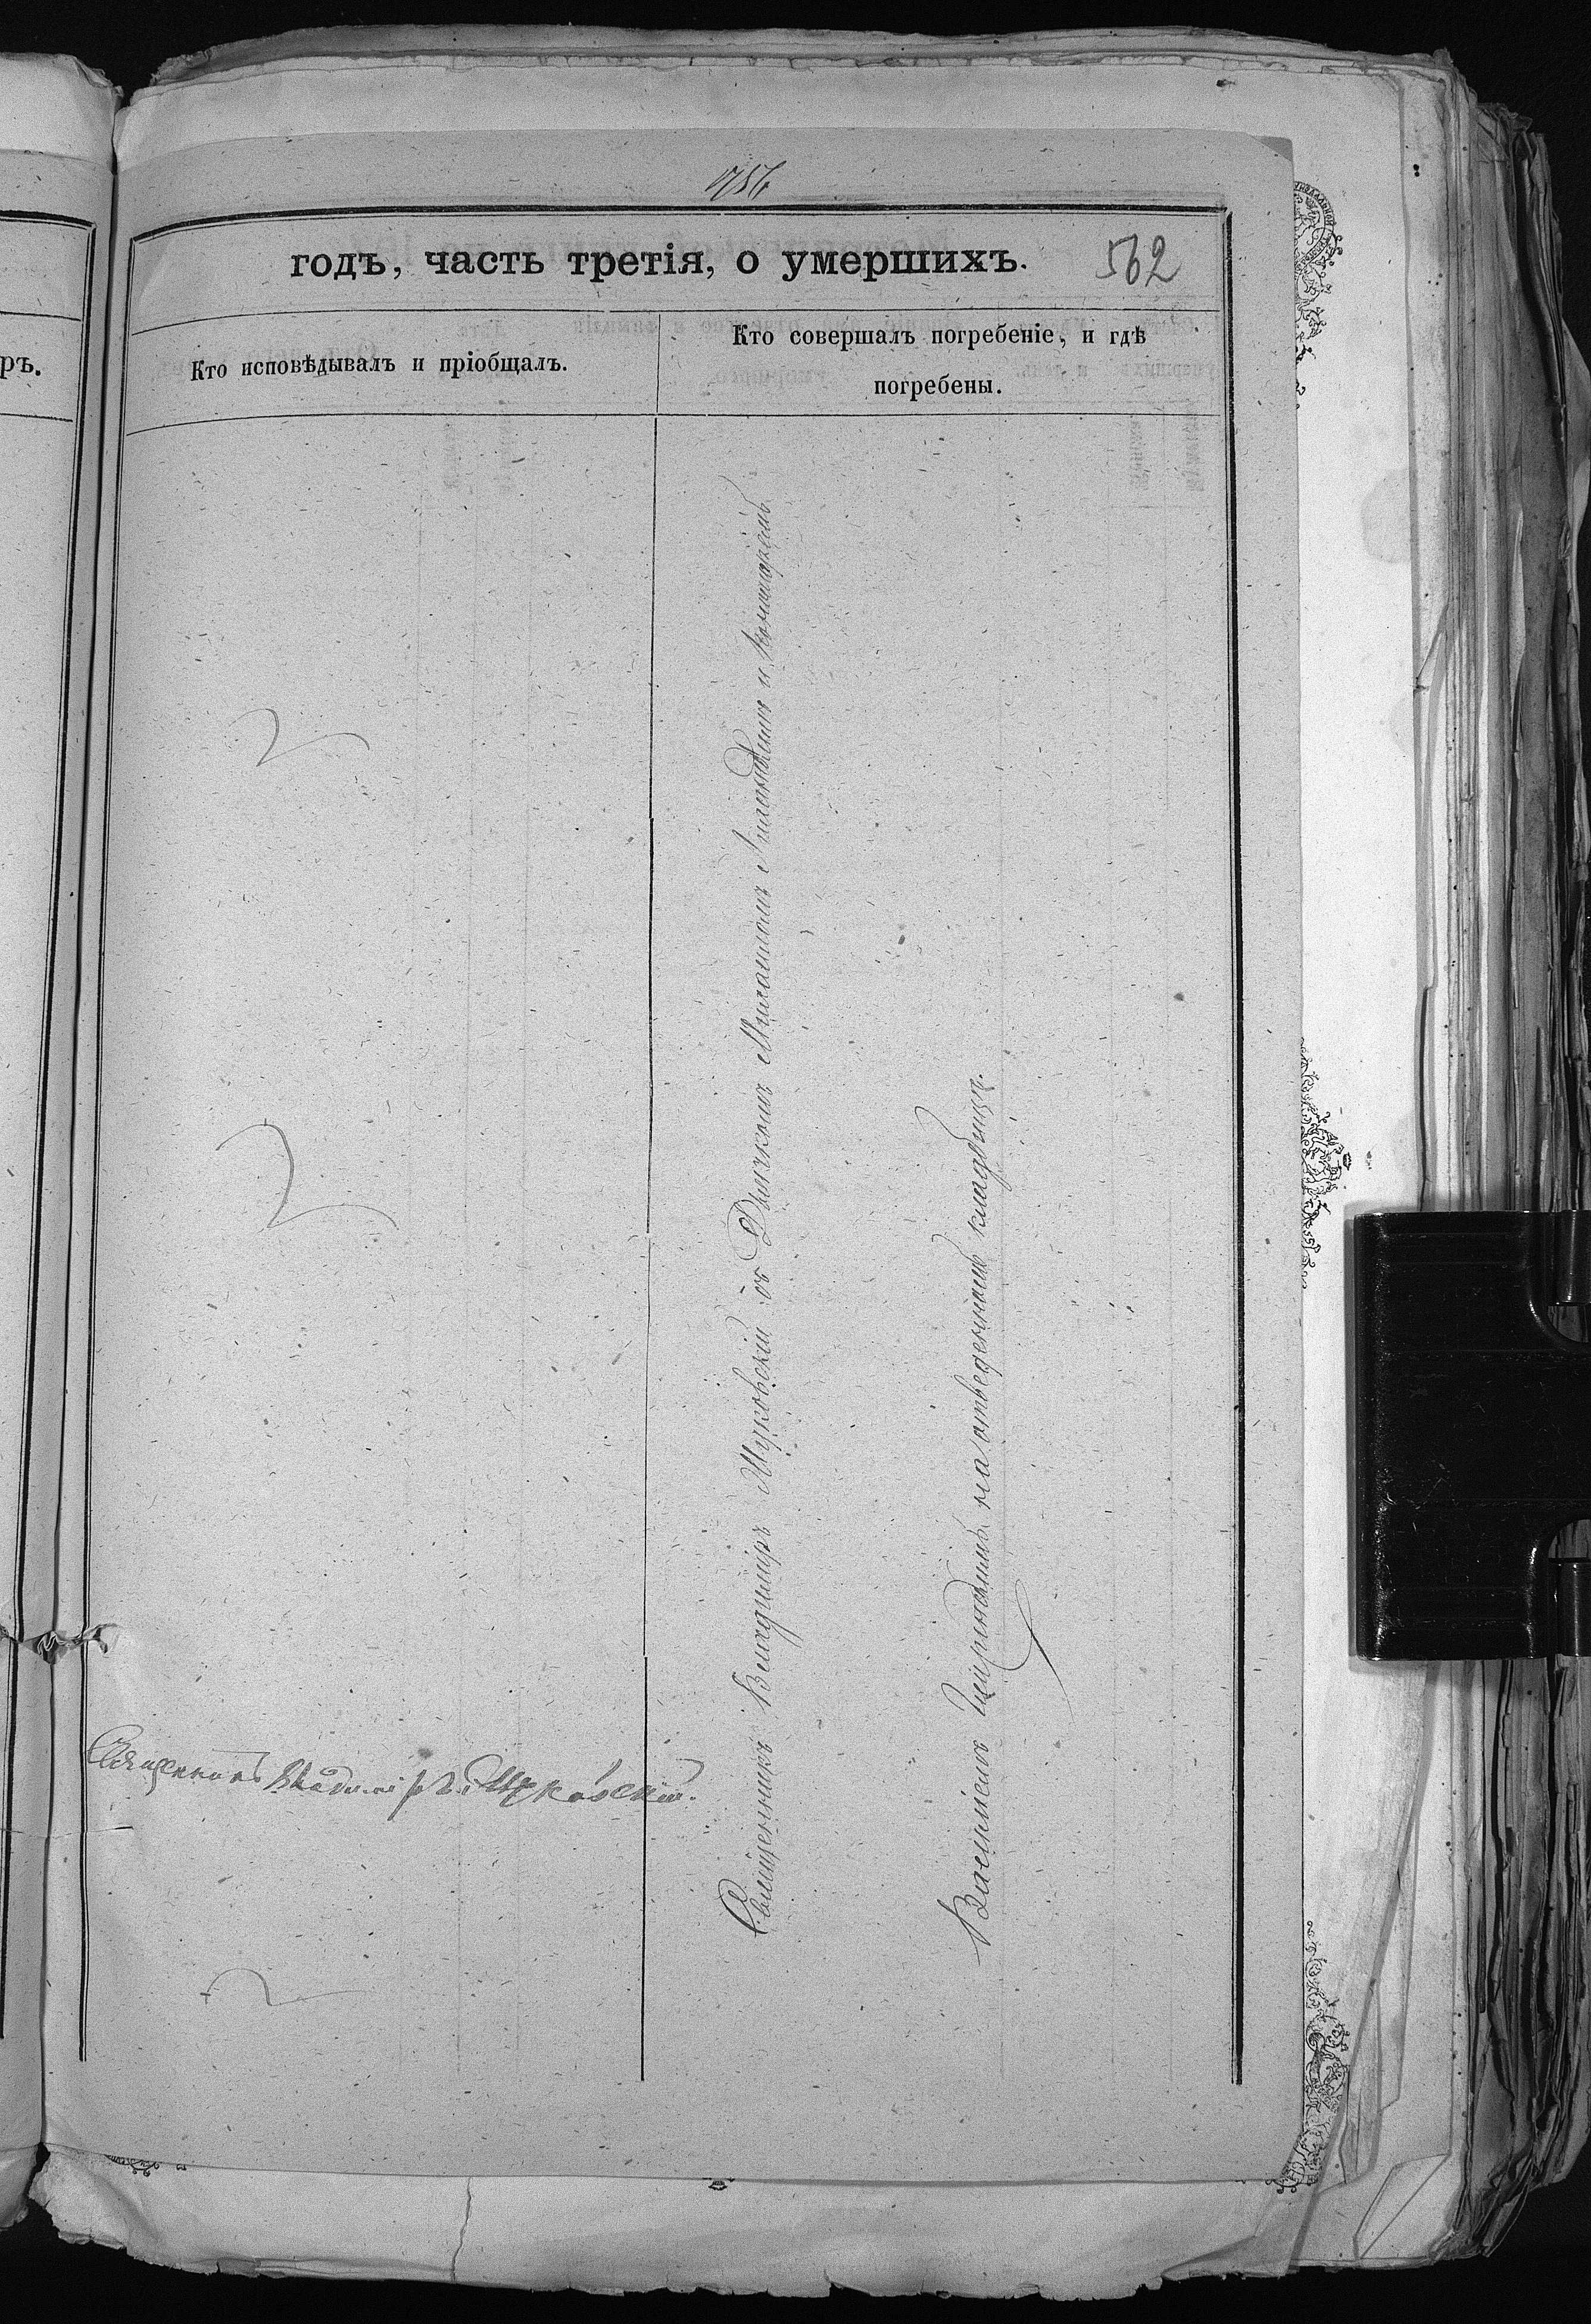 годъ, часть третія, о умершихъ. 562
Кто исповѣдывалъ и пріобщалъ.
Кто совершалъ погребеніе, и гдѣ
погребены.
Священникъ Владиміръ Жуковскій съ Дьячкомъ Михаиломъ и Пономаремъ
Василіемъ на отведенномъ кладбищѣ.
Священникъ Владиміръ Жуковскій.
ръ.